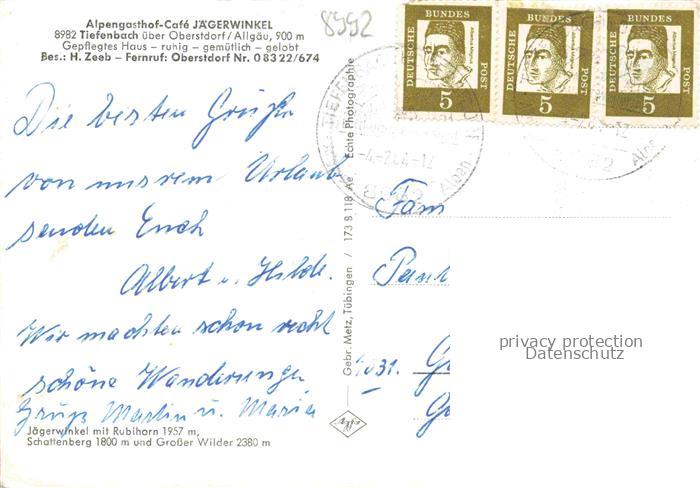 Alpengasthof-Café JÄGERWINKEL
8982 Tiefenbach über Oberstdorf/Allgäu, 900 m
Gepflegtes Haus – ruhig – gemütlich – gelobt
Bes.: H. Zeeb – Fernruf: Oberstdorf Nr. 08322/674
8992
DEUTSCHE BUNDES POST 5
DEUTSCHE BUNDES POST 5
DEUTSCHE BUNDES POST 5
Die besten Grüße
von unsrem Urlaub
senden Euch
Albert u. Hilde.
Wir machten schon recht
schöne Wanderunge
Gruß Martin u. Maria
Jägerwinkel mit Rubihorn 1957 m,
Schattenberg 1800 m und Großer Wilder 2380 m
Gebr. Metz, Tübingen / 173 8 118 Ae Echte Photographie
Fam
Paul
privacy protection
Datenschutz
Agfa